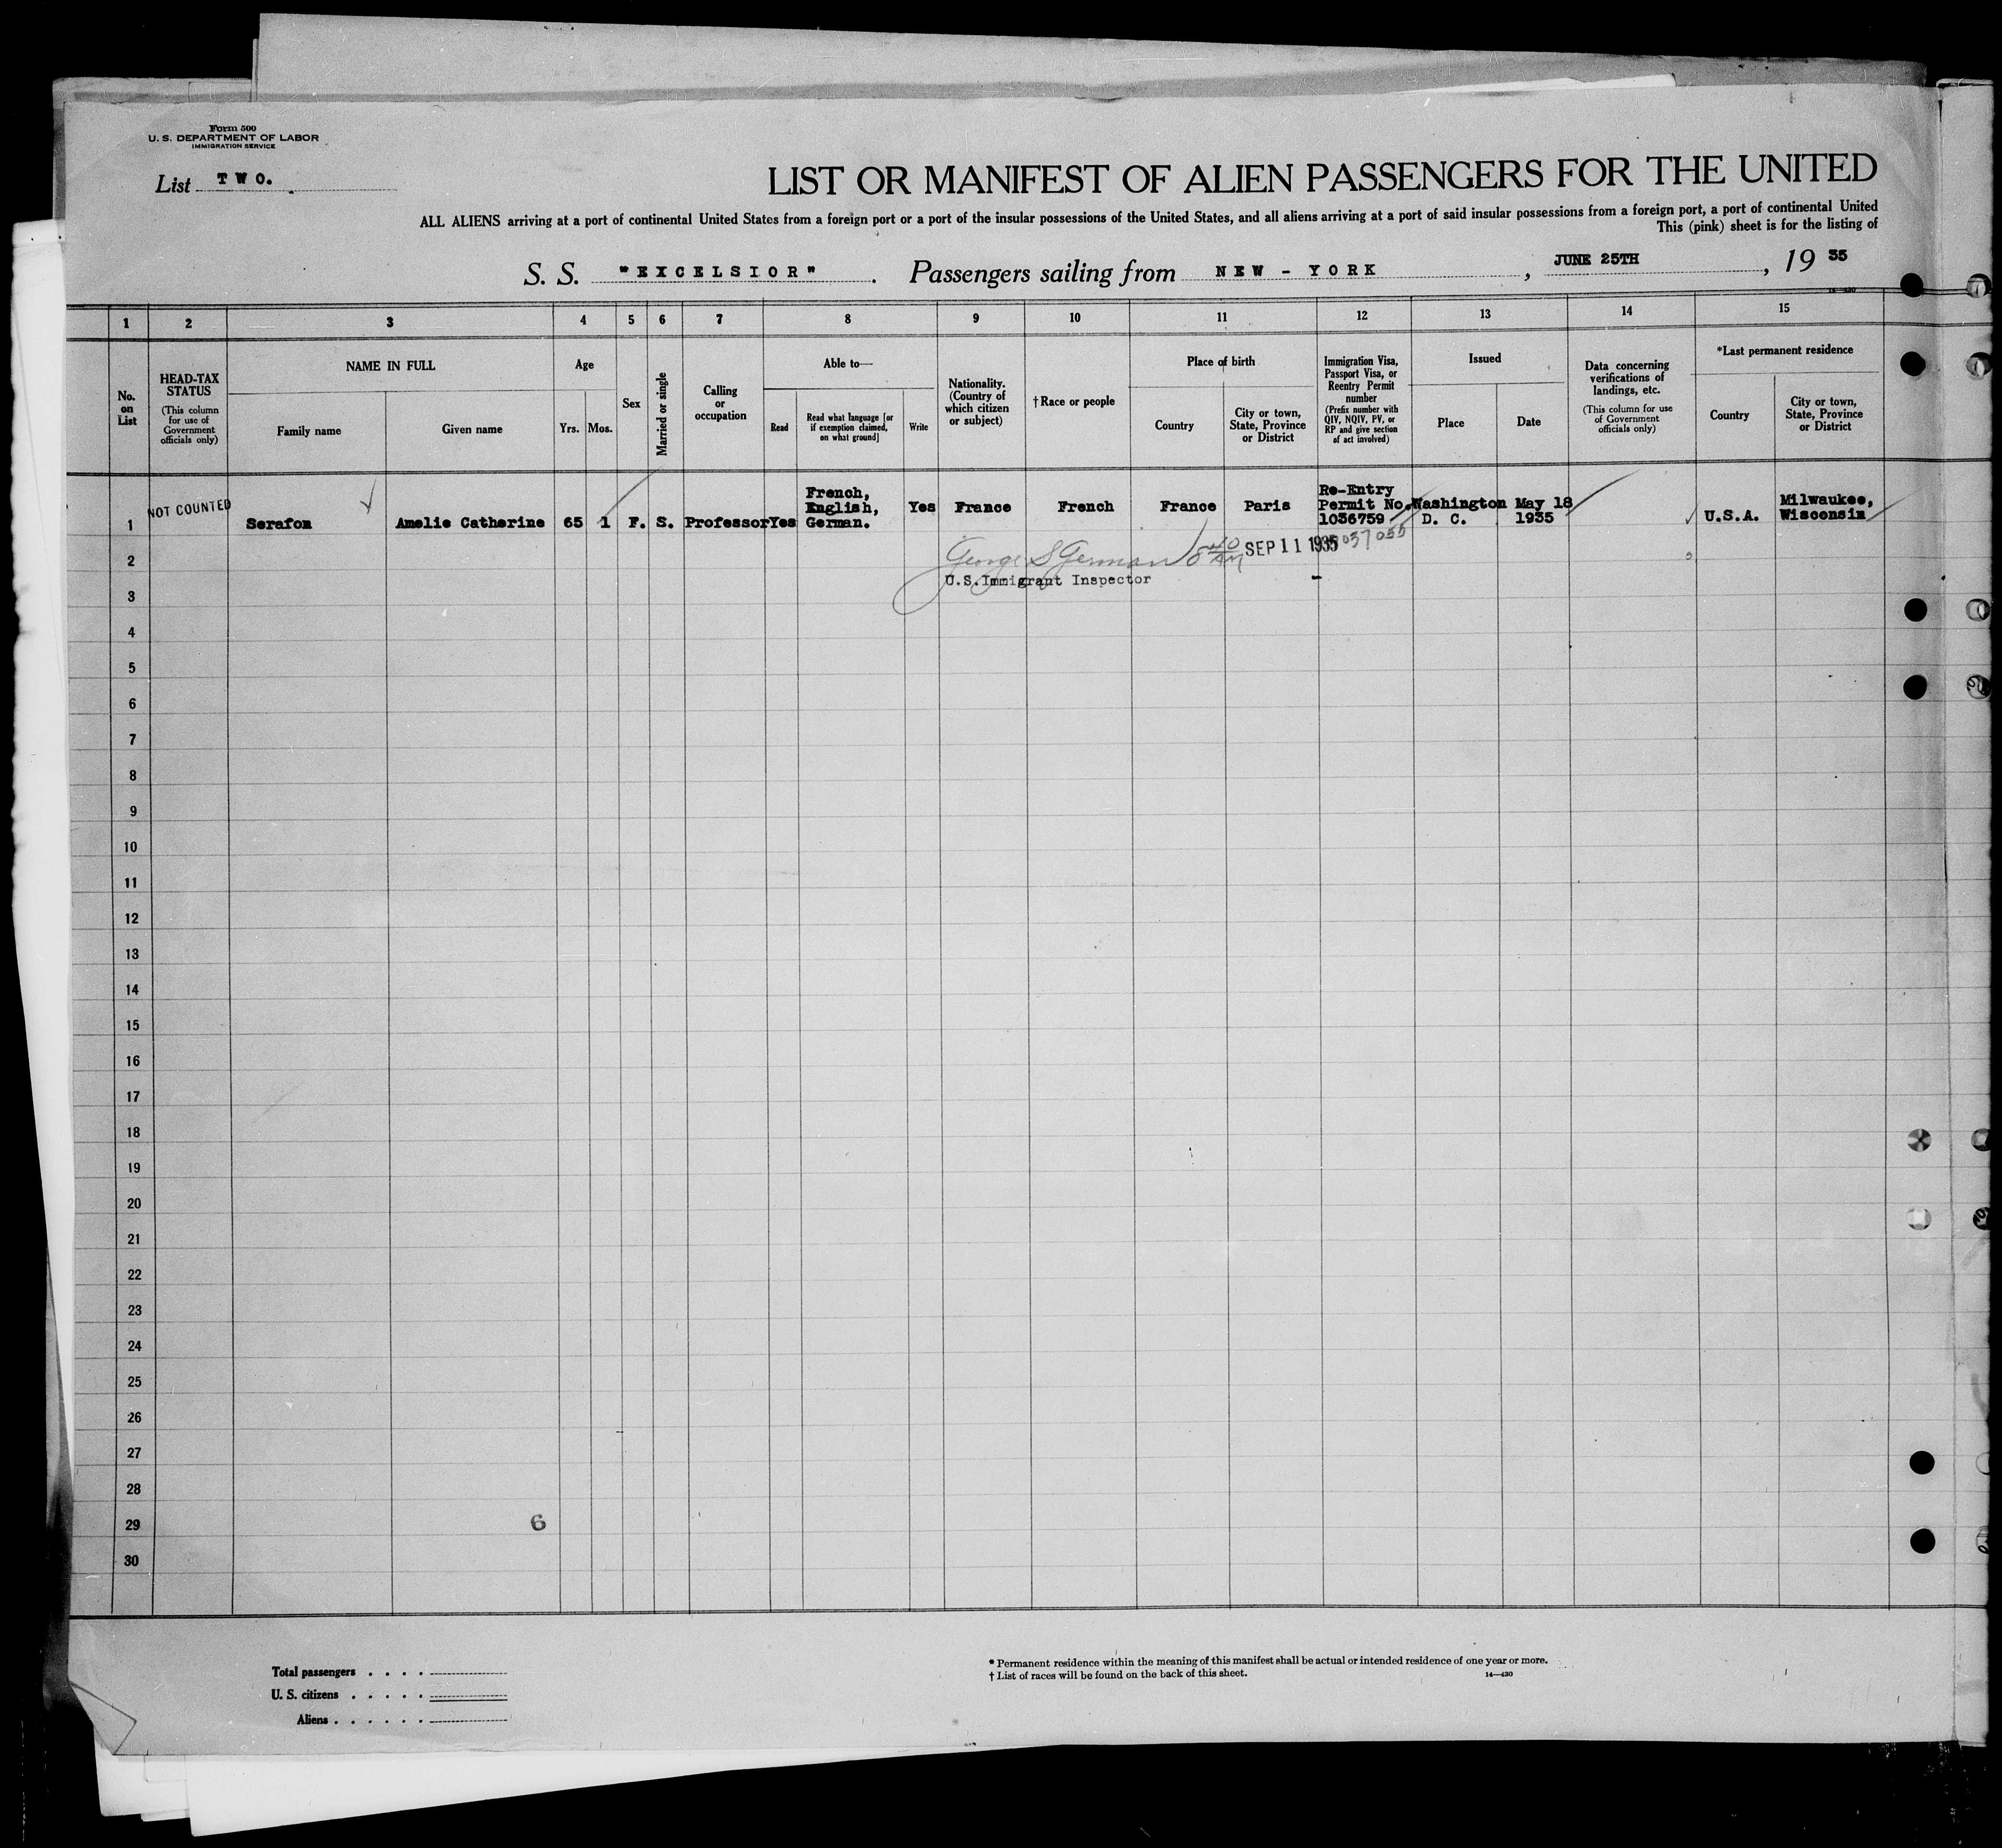 Form 500
U. S. DEPARTMENT OF LABOR
IMMIGRATION SERVICE
List TWO.
LIST OR MANIFEST OF ALIEN PASSENGERS FOR THE UNITED
ALL ALIENS arriving at a port of continental United States from a foreign port or a port of the insular possessions of the United States, and all aliens arriving at a port of said insular possessions from a foreign port, a port of continental United
This (pink) sheet is for the listing of
S. S. "EXCELSIOR". Passengers sailing from NEW - YORK, JUNE 25TH, 19 35
1 2 3 4 5 6 7 8 9 10 11 12 13 14 15
No. on List
HEAD-TAX STATUS
(This column for use of Government officials only)
NAME IN FULL
Family name
Given name
Age
Yrs. Mos.
Sex
Married or single
Calling or occupation
Able to—
Read
Read what language [or if exemption claimed, on what ground]
Write
Nationality. (Country of which citizen or subject)
†Race or people
Place of birth
Country
City or town, State, Province or District
Immigration Visa, Passport Visa, or Reentry Permit number
(Prefix number with QIV, NQIV, PV, or RP and give section of act involved)
Issued
Place
Date
Data concerning verifications of landings, etc.
(This column for use of Government officials only)
*Last permanent residence
Country
City or town, State, Province or District
1 NOT COUNTED Serafon Amelie Catherine 65 1 F. S. Professor Yes French, English, German. Yes France French France Paris Re-Entry Permit No. 1036759 Washington D. C. May 18 1935 U.S.A. Milwaukee, Wisconsin
George S German 8 40 AM SEP 11 1935
U.S.Immigrant Inspector
2
3
4
5
6
7
8
9
10
11
12
13
14
15
16
17
18
19
20
21
22
23
24
25
26
27
28
29
6
30
Total passengers . . . .
U. S. citizens . . . . .
Aliens . . . . . .
* Permanent residence within the meaning of this manifest shall be actual or intended residence of one year or more.
† List of races will be found on the back of this sheet.
14—430